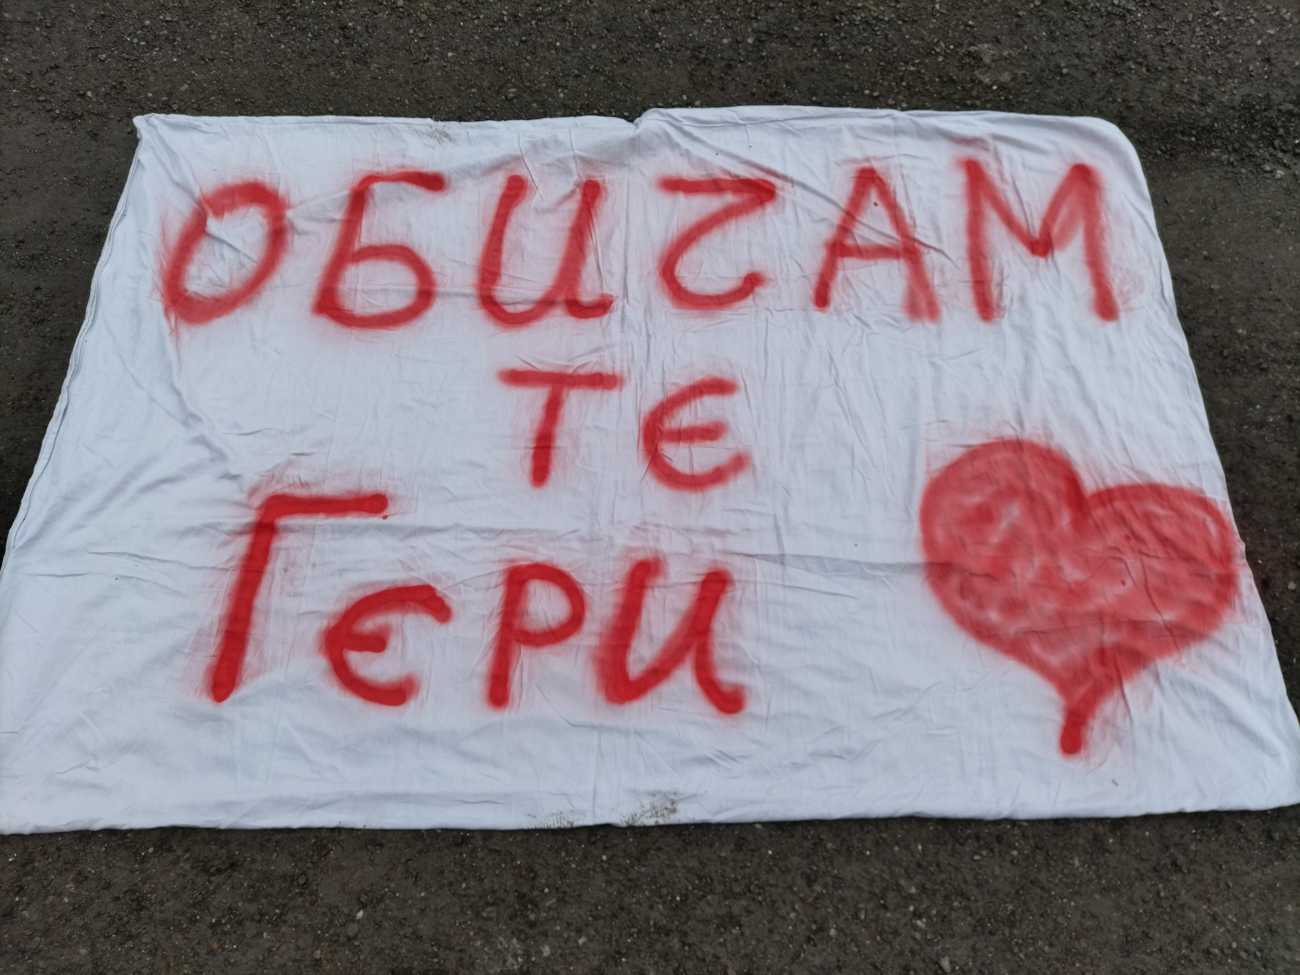 ОБИЧАМ
ТЕ
Гери